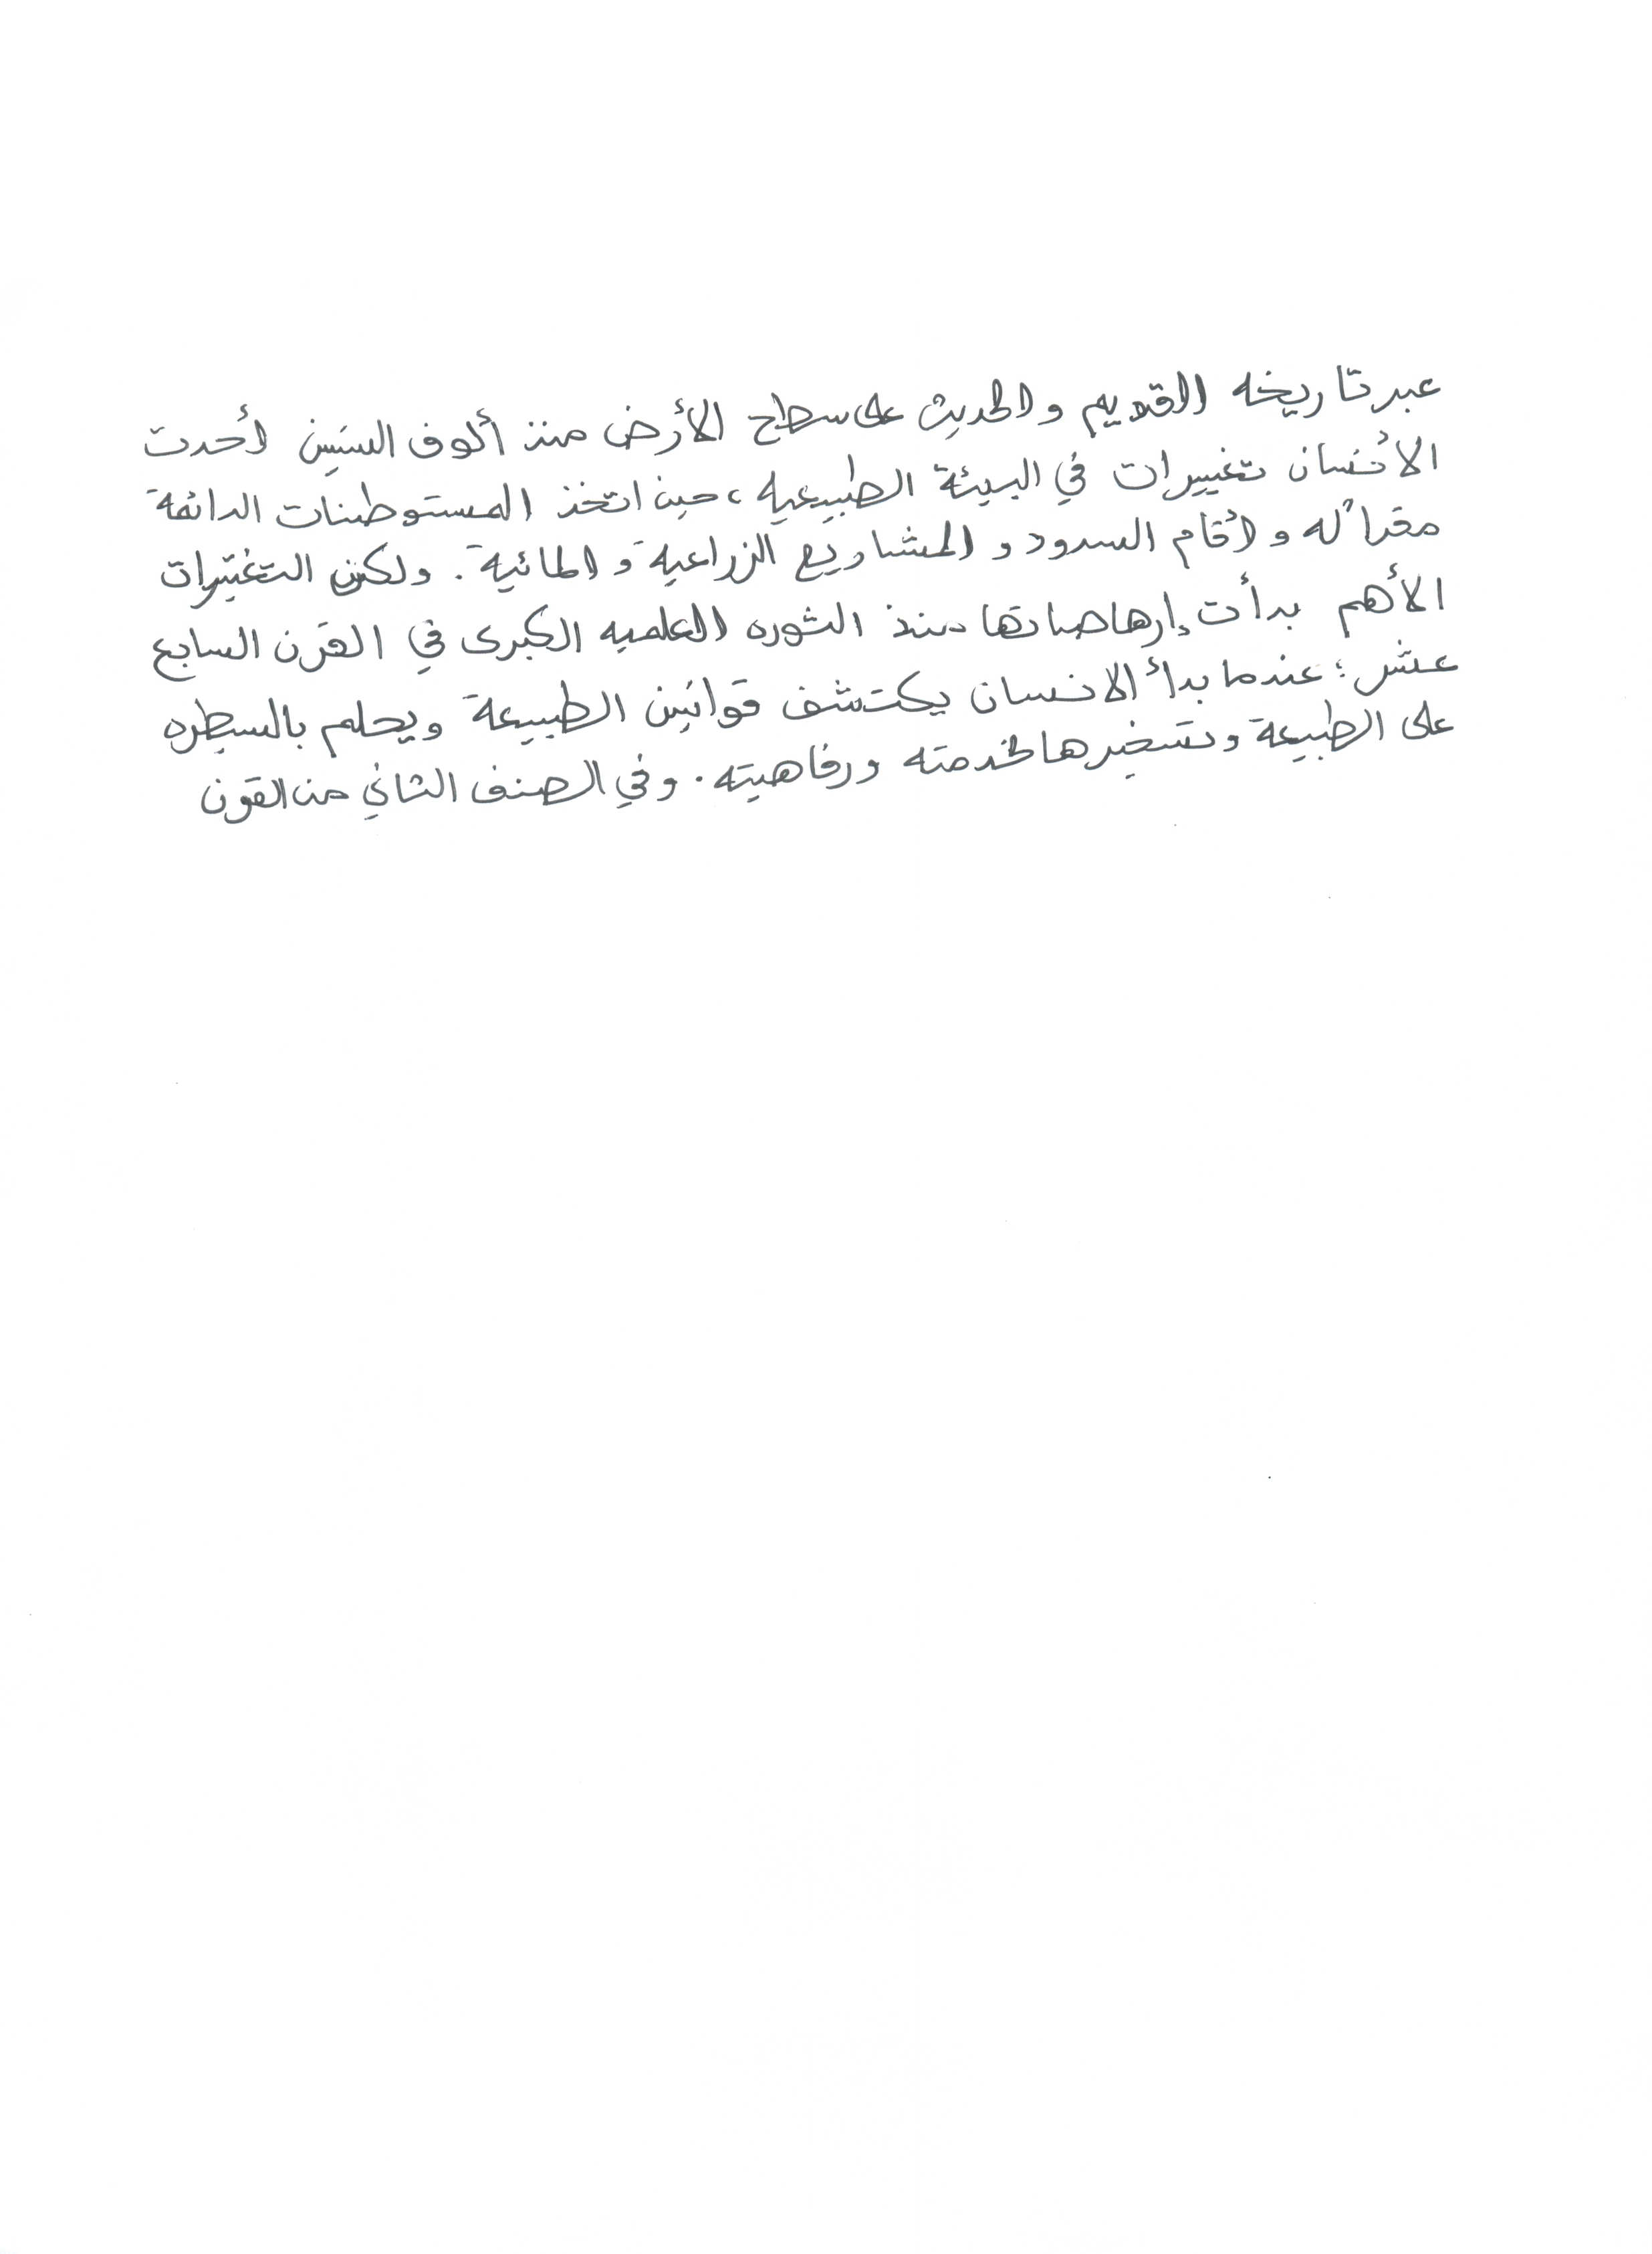 عبر تاريخه القديم والحديث على سطح الأرض منذ ألوف السنين أحدت
الأنسان تغييرات في البيئة الطبيعيه، حين اتخذ المستوطنات الدائمة
مقراً له وأقام السدود والمشاريع الزراعية والمائية. ولكن التغيّرات
الأهم بدأت إرهاصاتها منذ الثوره العلميه الكبرى في القرن السابع
عشر؛ عندما بدأ الانسان يكتشف قوانين الطبيعة ويحلم بالسيطره
على الطبيعة وتسخيرها لخدمته ورفاهيته. وفي الصنف الثاني من القرن